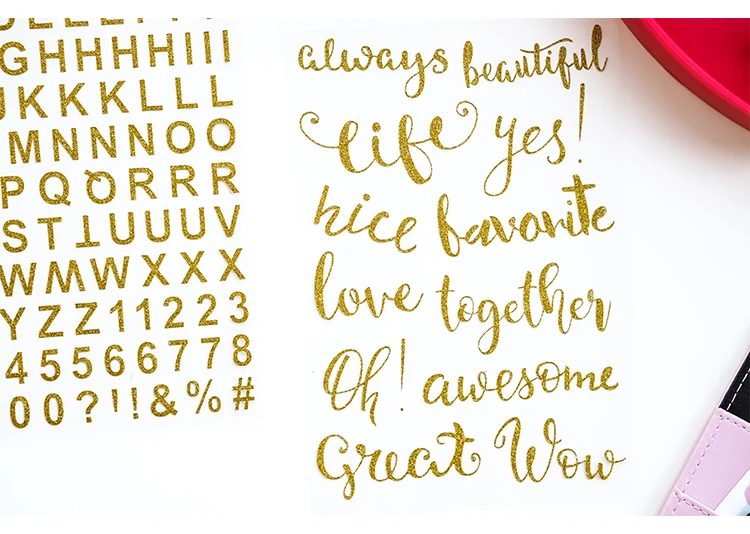 GHHHHIII
JKKKLLL
MNNNOO
PQQRRR
STTUUUV
WMWXXX
YZZ11223
45566778
00?!!&%#
always beautiful
life yes!
nice favorite
love together
Oh! awesome
Great Wow